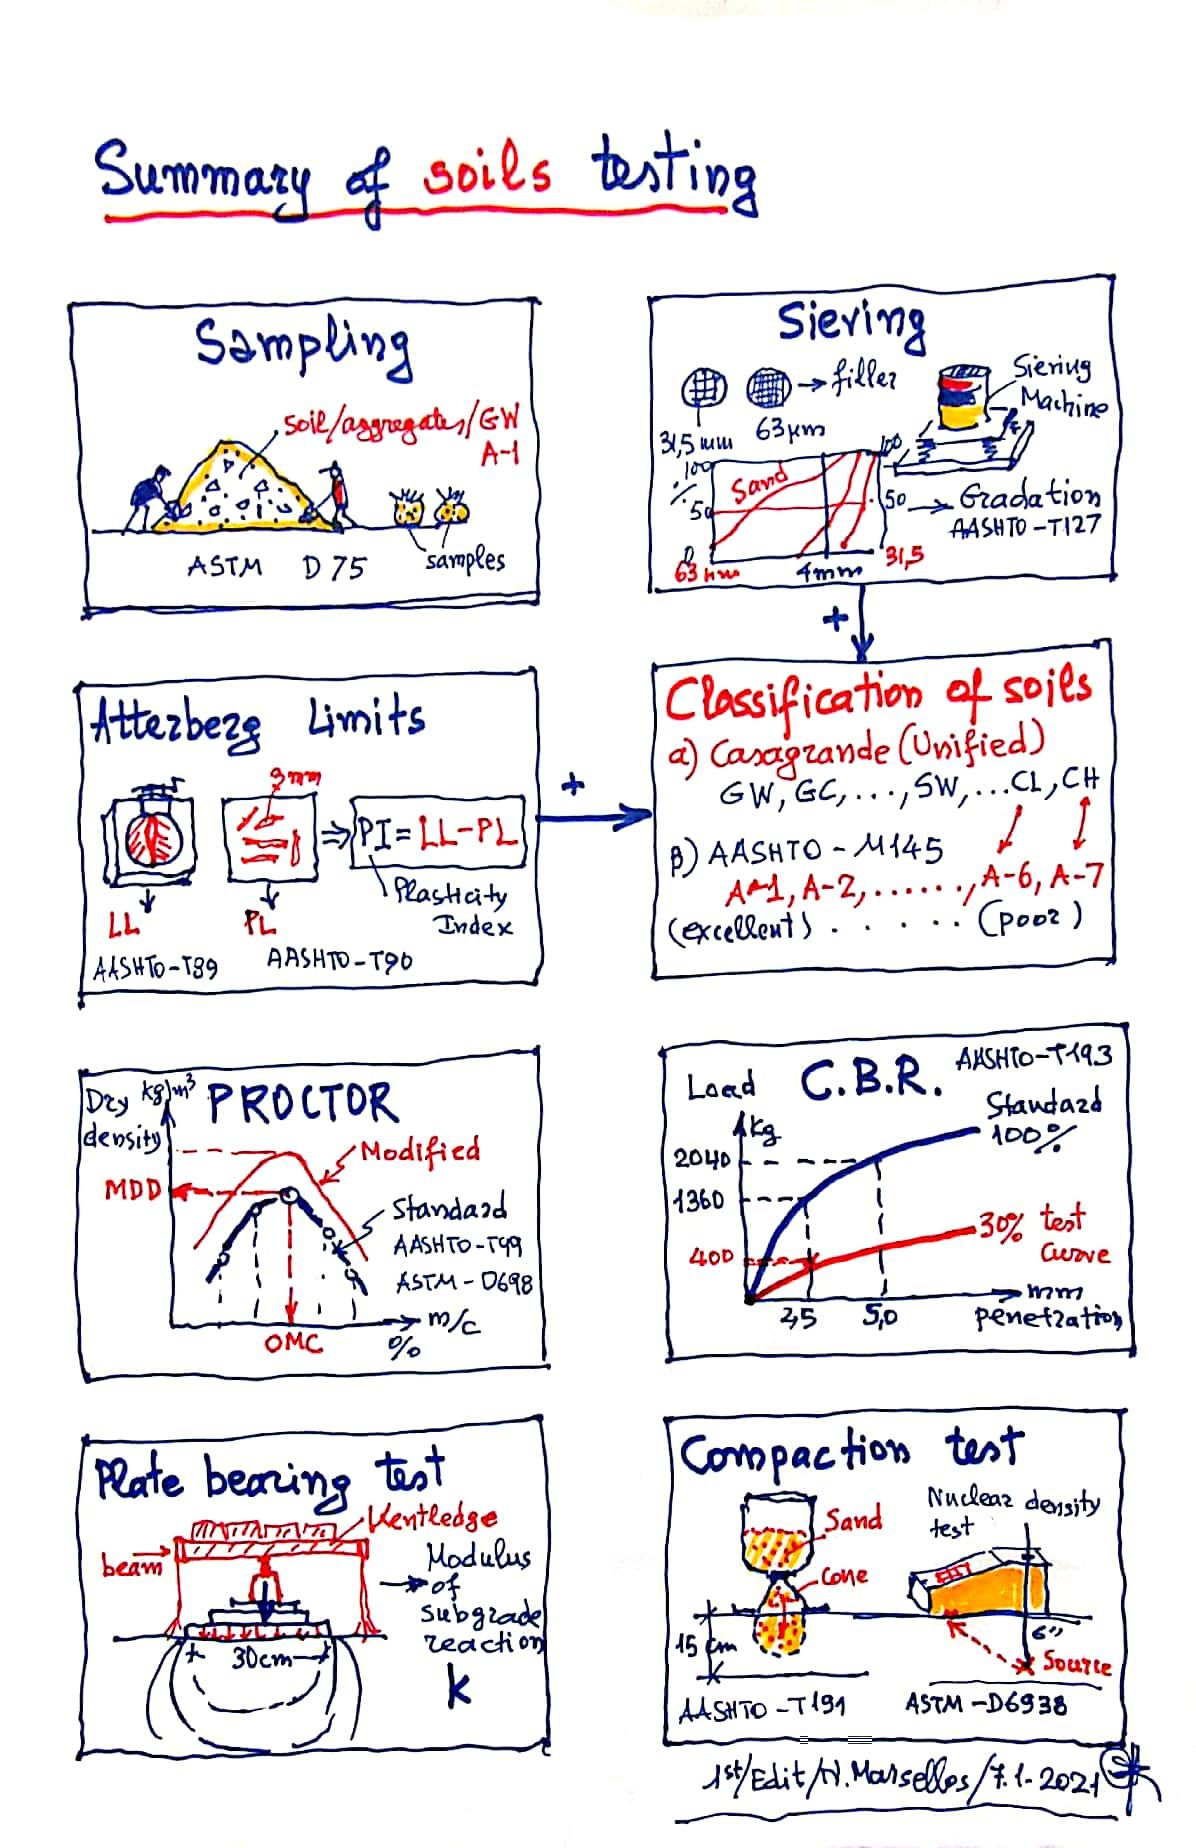 Summary of soils testing
Sampling
soil/aggregates/GW
A-1
samples
ASTM D 75
Siering
filler
31,5 mm 63 µm
Siering
Machine
100
%
50
0
Sand
100
50
Gradation
AASHTO-T127
63 µm 4mm 31,5
+
Atterberg Limits
3mm
PI = LL-PL
Plasticity
Index
LL PL
AASHTO-T89 AASHTO-T90
+
Classification of soils
a) Casagrande (Unified)
GW, GC, ..., SW, ...CL, CH
β) AASHTO - M145
A-1, A-2, ......, A-6, A-7
(excellent) . . . . . (poor)
PROCTOR
Dry kg/m³
density
MDD
Modified
Standard
AASHTO-T99
ASTM-D698
m/c
%
OMC
C.B.R. AASHTO-T193
Load
kg
Standard
100%
2040
1360
400
30% test
curve
2,5 5,0
mm
penetration
Plate bearing test
Kentledge
beam
Modulus
of
subgrade
reaction
k
30cm
Compaction test
Sand
Cone
15 cm
AASHTO-T191
Nuclear density
test
6"
Source
ASTM-D6938
1st/Edit/N.Marsellos/7.1-2021